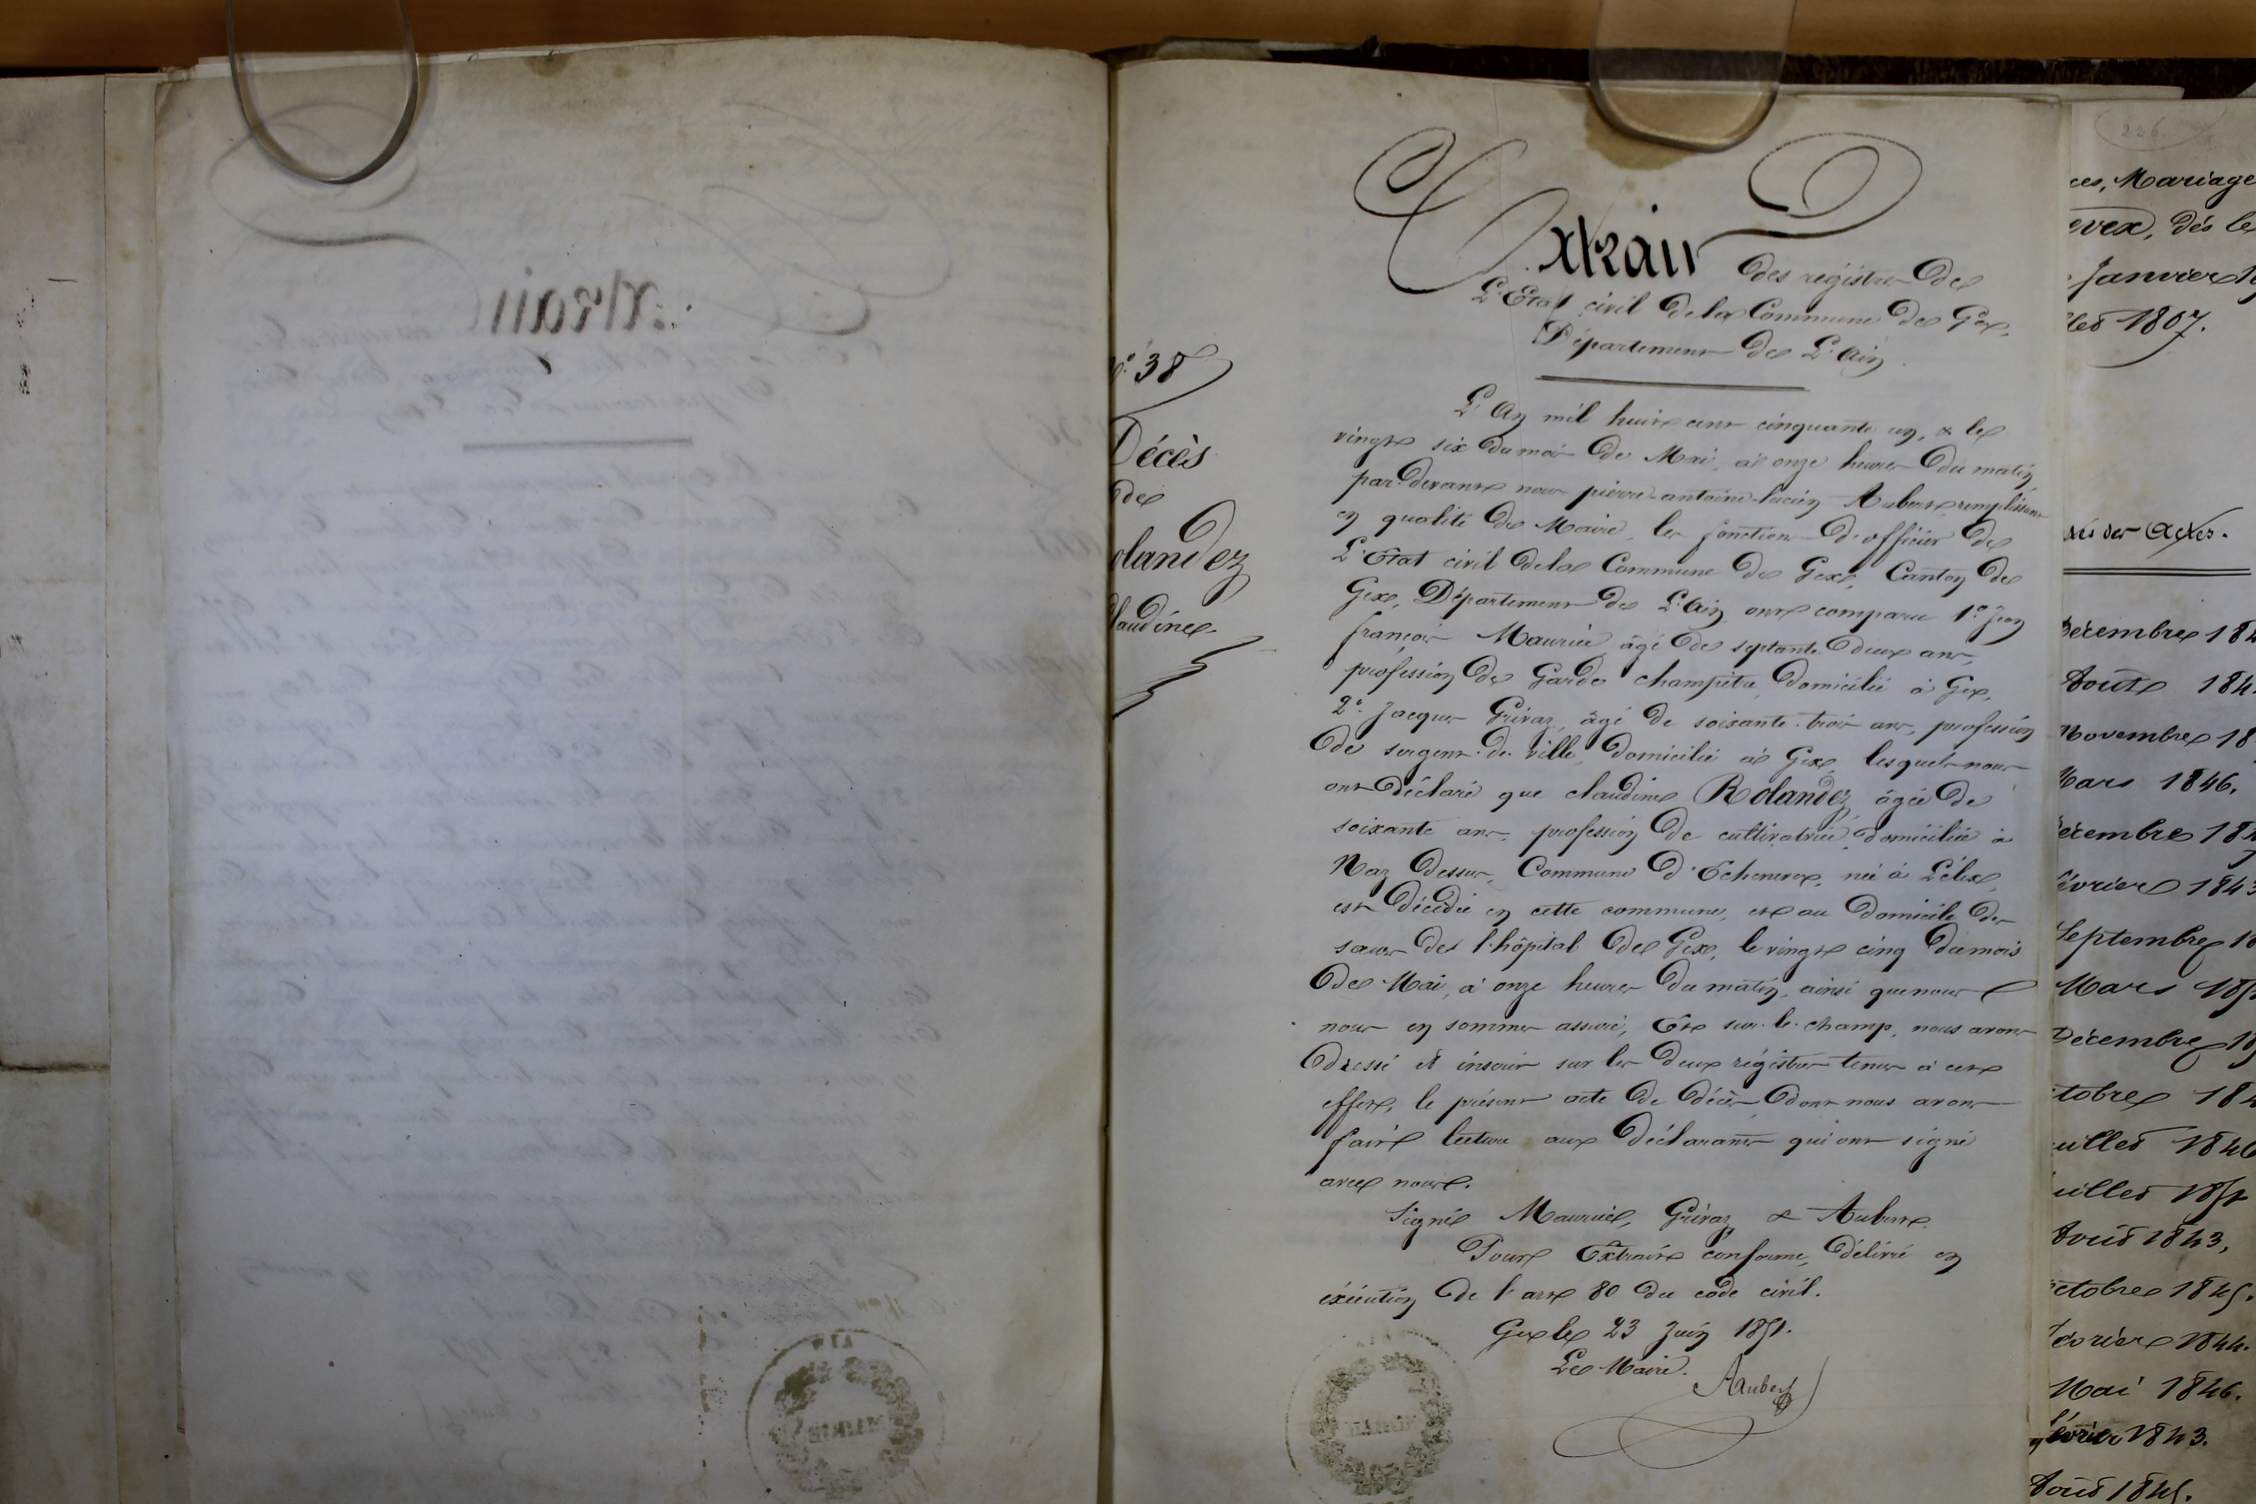 N.° 38
Décès
de
olandez
laudine
Extrait des registres de
L'Etat civil de la Commune de Gex.
Département de L'Ain
L'An mil huit cent cinquante un, & le
vingt six du mois de Mai, à onze heures du matin
par devant nous pierre-antoine-lucien Aubert remplissant
en qualité de Maire, les fonctions d'officier de
L'Etat civil de la Commune de Gex, Canton de
Gex, Département de L'Ain ont comparu 1.° Jean
françois Maurice, âgé de septante deux ans,
profession de Garde champêtre, domicilié à Gex,
2.° Jacques Grivaz, âgé de soixante-trois ans, profession
de sergent-de-ville, domicilié à Gex, lesquels nous
ont déclaré que claudine Rolandez, âgée de
soixante ans, profession de cultivatrice, domiciliée à
Naz dessus, Commune d'Echenevex, née à Lélex,
est décédée en cette commune, et au domicile des
sœurs de l'hôpital de Gex, le vingt cinq du mois
de Mai, à onze heures du matin, ainsi que nous
nous en sommes assuré, Et sur-le-champ, nous avons
dressé et inscrit sur les deux régistres tenus à cet
effet, le présent acte de décès, dont nous avons
fait lecture aux déclarants qui ont signé
avec nous.
Signé Maurice, Grivaz & Aubert.
Pour Extrait conforme, délivré en
exécution de l'art 80 du code civil.
Gex le 23 Juin 1851.
Le Maire.
Aubert
MAIRIE
226
ces, Mariage
evex, dès le
Janvier 1
llet 1807.
des Actes.
Décembre 184
Août 184
Novembre 18
Mars 1846.
Décembre 184
février 1843
Septembre 18
Mars 185
Décembre 18
ctobre 184
uillet 1846
uillet 185
Août 1843,
octobre 1845.
février 1844.
Mai 1846.
février 1843.
Août 1845.